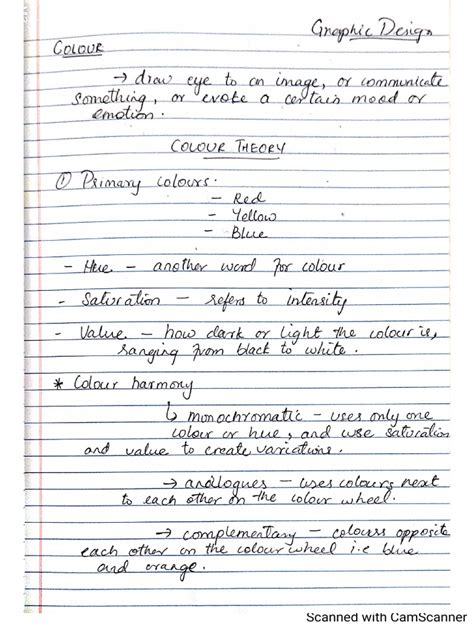 Graphic Design
COLOUR
→ draw eye to an image, or communicate
something, or evoke a certain mood or
emotion.
COLOUR THEORY
① Primary colours.
- Red
- Yellow
- Blue
- Hue. - another word for colour
- Saturation - refers to intensity
- Value - how dark or light the colour is,
ranging from black to white.
* Colour harmony
↳ monochromatic - uses only one
colour or hue, and use saturation
and value to create variations.
→ analogues - uses colours next
to each other on the colour wheel.
→ complementary - colours opposite
each other on the colour wheel i.e blue
and orange.
Scanned with CamScanner